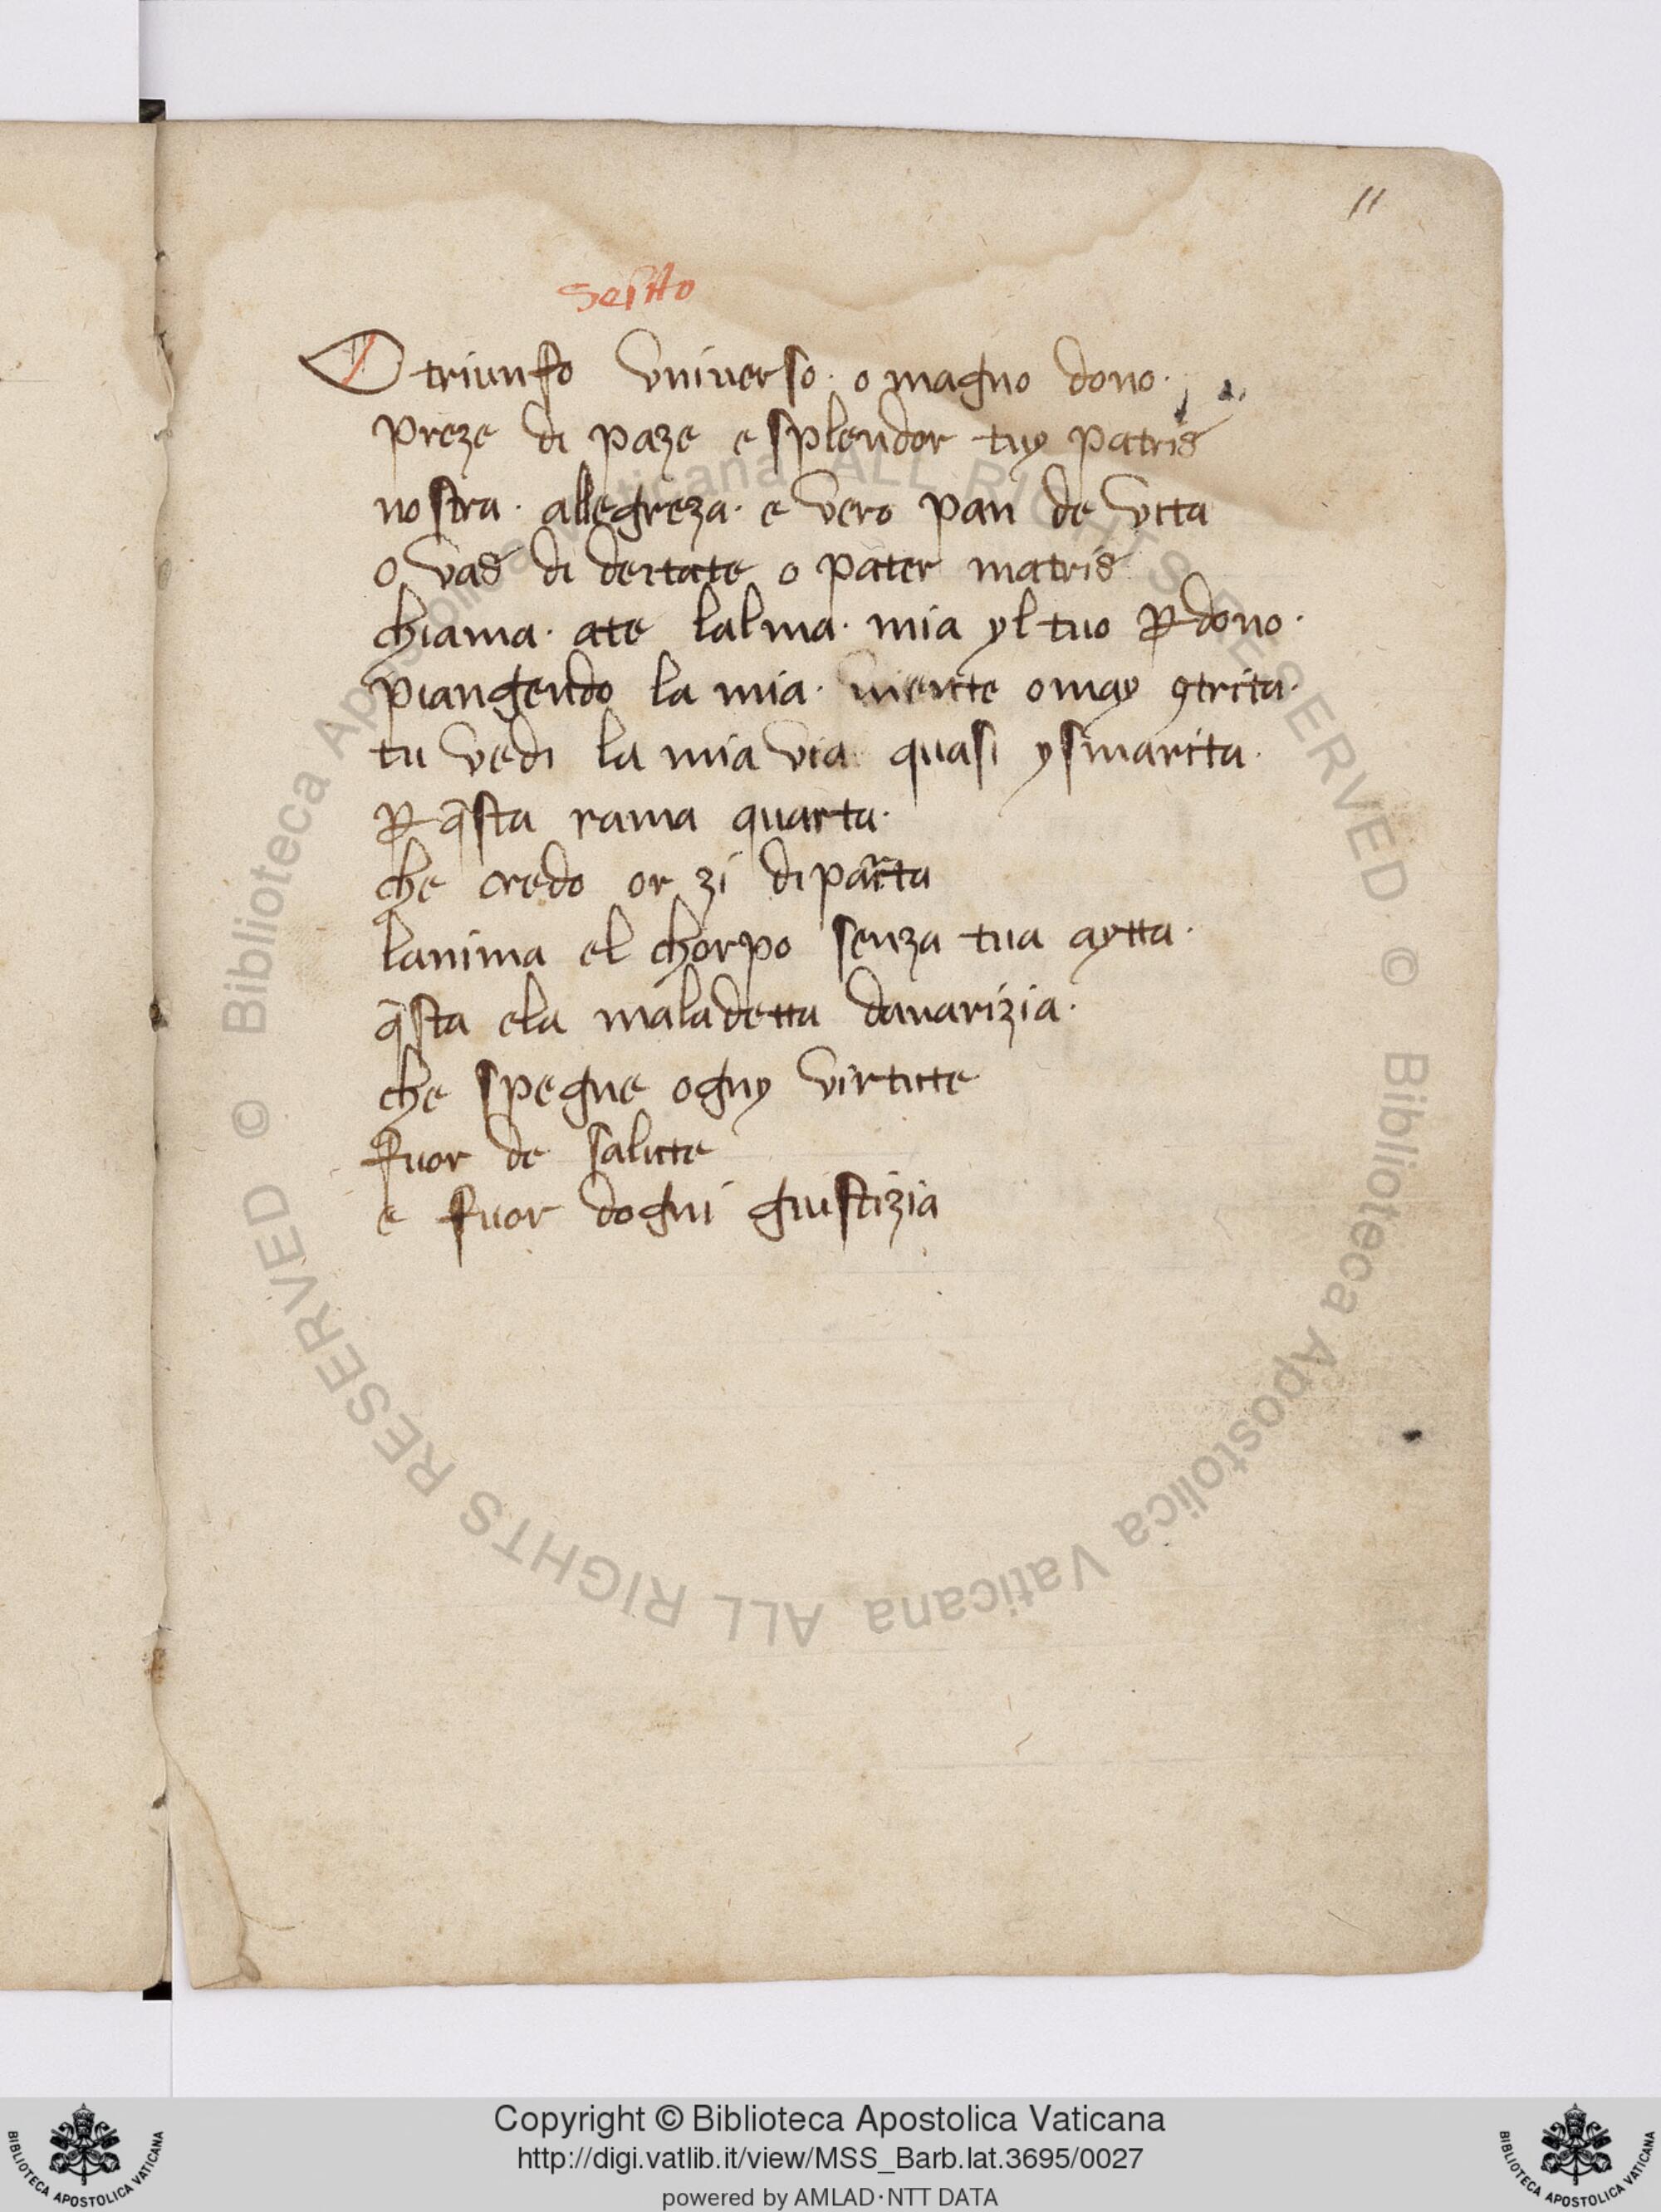 11
sestto
O triunfo vniuerso · o magno dono ·
preze di paze e splendor tuy patris
nostra · allegreza · e vero pan de vita
o vas di deitate o pater matris
chiama · ate lalma · mia yl tuo ꝑdono ·
piangendo la mia · mente omay ꝯtrita ·
tu vedi la mia via quasi ysmarita ·
ꝑ q̄sta rama quarta ·
che credo or zi diparta
lanima el chorpo senza tua aytta ·
q̄sta ela maladetta dauarizia ·
che spegne ogny virtute
fuor de salute
e fuor dogni giustizia
© Biblioteca Apostolica Vaticana ALL RIGHTS RESERVED © Biblioteca Apostolica Vaticana ALL RIGHTS RESERVED
Copyright © Biblioteca Apostolica Vaticana
http://digi.vatlib.it/view/MSS_Barb.lat.3695/0027
powered by AMLAD·NTT DATA
BIBLIOTECA APOSTOLICA VATICANA
BIBLIOTECA APOSTOLICA VATICANA